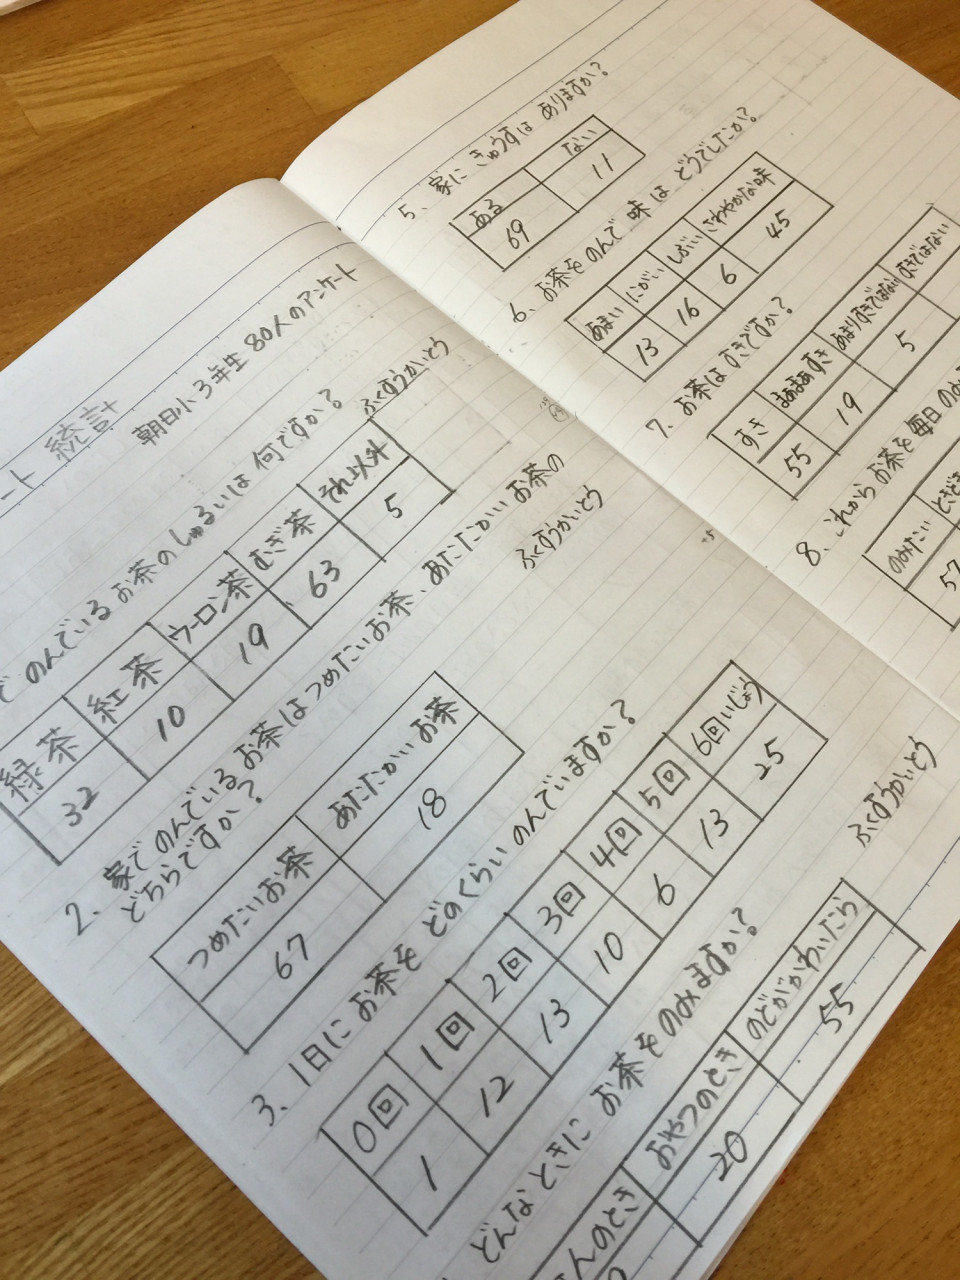 ート 統計
朝日小3年生 80人のアンケート
で のんでいる お茶のしゅるいは 何ですか? ふくすうかいとう
緑茶 紅茶 ウーロン茶 むぎ茶 それ以外
32 10 19 63 5
2、家でのんでいるお茶はつめたいお茶、あたたかいお茶の
どちらですか? ふくすうかいとう
つめたいお茶 あたたかいお茶
67 18
3、1日に お茶を どのくらい のんでいますか?
0回 1回 2回 3回 4回 5回 6回いじょう
1 12 13 10 6 13 25
どんなときに お茶をのみますか? ふくすうかいとう
んのとき おやつのとき のどがかわいたら
20 55
5、家に きゅうすは ありますか?
ある ない
69 11
6、お茶をのんで 味は どうでしたか?
あまい にがい しぶい さわやかな味
13 16 6 45
7、お茶は すきですか?
すき まあまあすき あまりすきではない すきではない
55 19 5
8、これから お茶を 毎日 のみ
のみたい ときどき
57